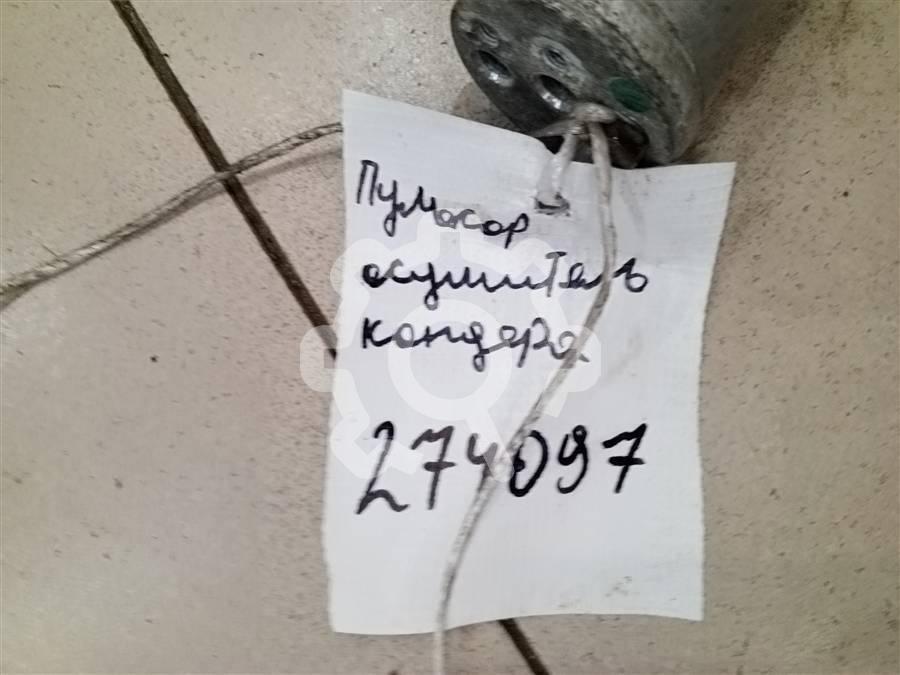 Пумокор
осушитель
кондера
274097